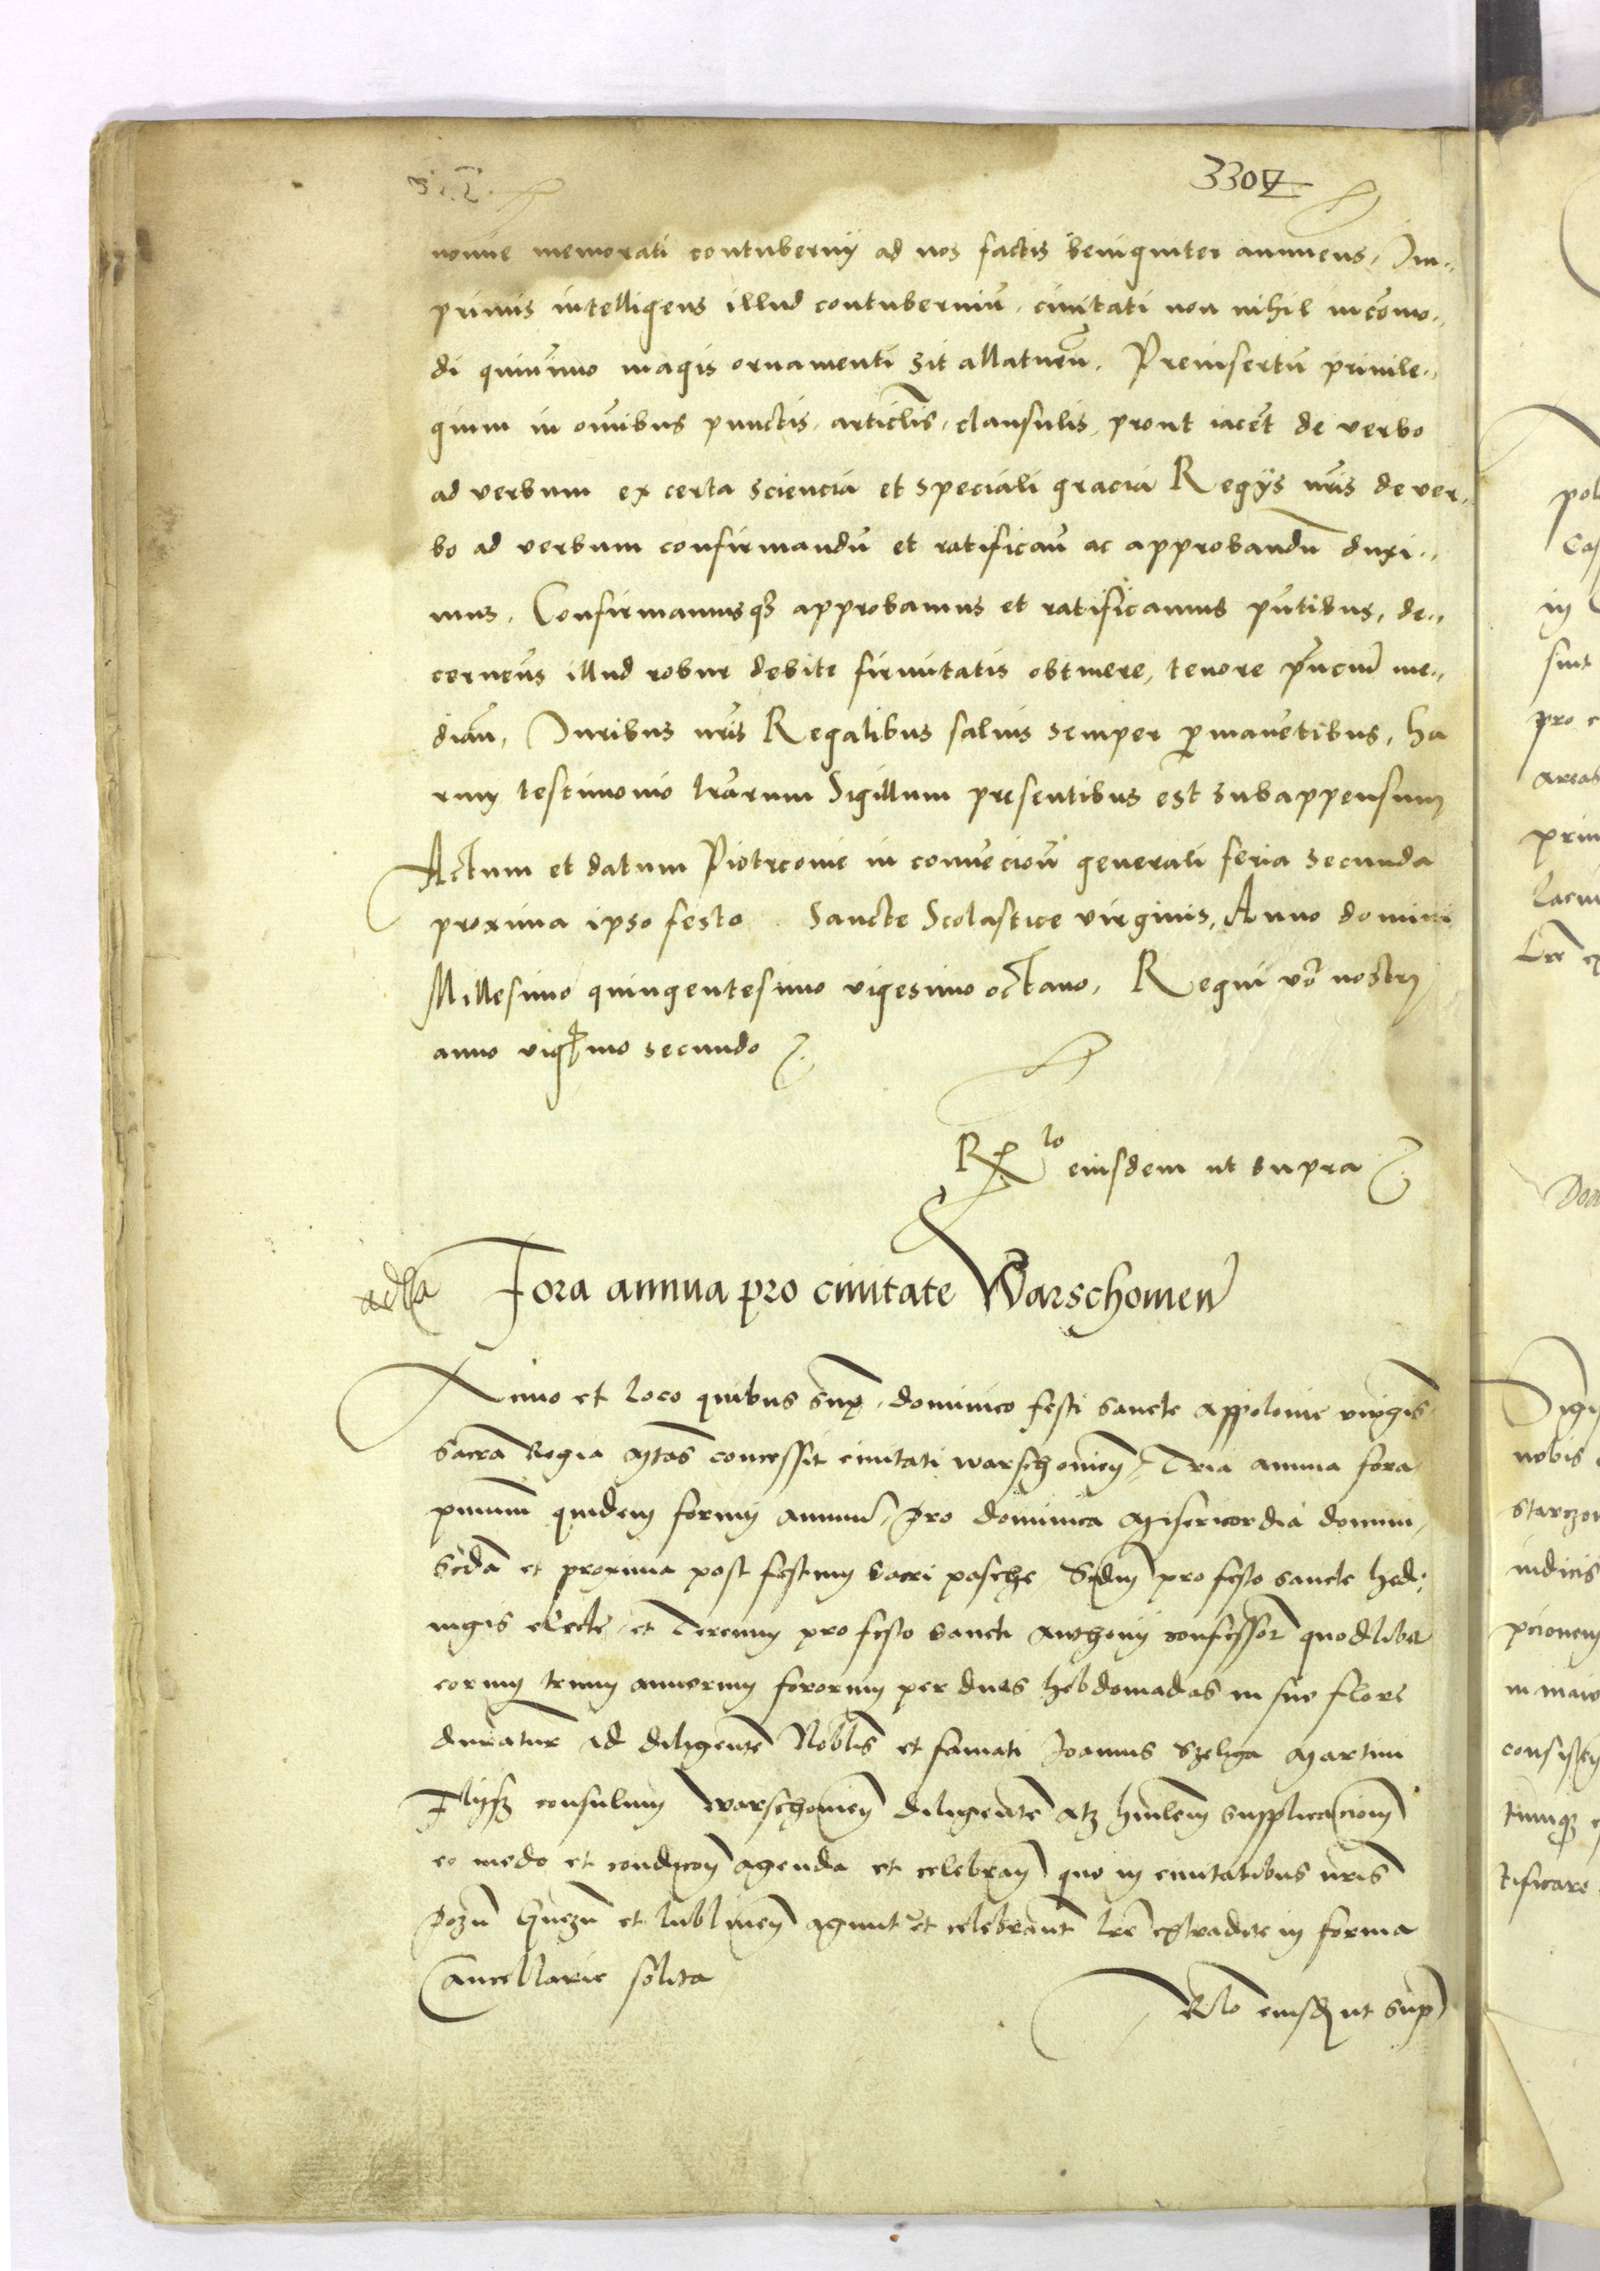 330
nomine memorati contubernij ad nos factis benigniter annuens, Im-
primis intelligens illud contuberniũ, ciuitati non nihil incõmo-
di quiuĩmo magis ornamenti sit allaturũ. Preinsertũ priuile-
gium in oĩnibus punctis, articlis, clausulis, prout iacẽt de verbo
ad verbum ex certa sciencia et speciali gracia Regijs nr̃is de ver-
bo ad verbum confirmandũ et ratificañ ac approbandũ duxi-
mus. Confirmamusq3 approbamus et ratificamus pñtibus, de-
cernẽns illud robur debite firmitatis obtinere, tenore pñciũ me-
diañ, Iuribus nr̃is Regalibus saluis semper p̱manẽtibus, ha
rum testimonio lr̃arum Sigillum presentibus est subappensum
Actum et datum Piotrcouie in conuẽcioñ generali feria secunda
proxima ipso festo Sancte Scolastice virginis, Anno domini
Millesimo quingentesimo vigesimo octauo, Regni vo nostri
anno viģmo secundo
R lo eiusdem ut supra
Fora annua pro ciuitate Warschouien̄
Anno et loco quibus sup̱, dominico festi sancte Appolonie virgis
sacra Regia Mtas concessit ciuitati warschouien̄, Tria annua fora
primum quidem forum annuũ, pro dominica Misericordia domini,
scda et proxima post festum sacri pasche, Scdm pro festo sancte hed-
uigis electe, et Tercium pro festo sancti Anthonij confessor quodlibet
eorum trium annorum fororum per duas hebdomadas in suo flore
duratur Ad diligentẽ Noblis et famati Ioannis Szeliga Martini
consulum warschouien̄ diligentẽ atq3 humlem supplicacionem
eo modo et condicon̄ agenda et celebran̄ quo in ciuitatibus nr̃is
Pozn̄ Gnezn̄ et lublinen̄ agunt et celebrant lr̃e extradite in forma
Cancellarie solita
Rlo eiusd ut sup̱